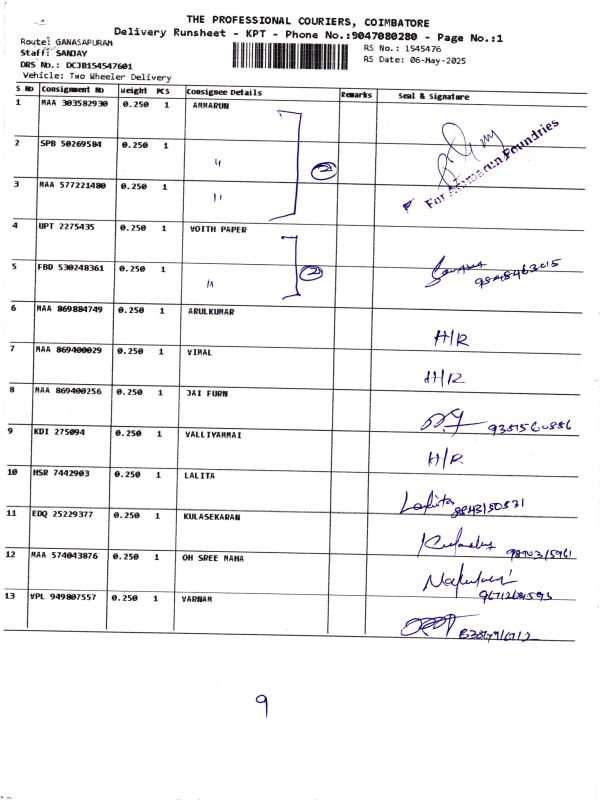 THE PROFESSIONAL COURIERS, COIMBATORE
Delivery Runsheet - KPT - Phone No.:9047080280 - Page No.:1
Route: GANASAPURAM
Staff: SANJAY
DRS No.: DCJB154547601
Vehicle: Two Wheeler Delivery
RS No.: 1545476
RS Date: 06-May-2025
S No Consignment No Weight PCS Consignee Details Remarks Seal & Signature
1 MAA 303582930 0.250 1 AMMARUN
2 SPB 50269584 0.250 1 "
3 MAA 577221480 0.250 1 "
2
For Ammarun Foundries
4 UPT 2275435 0.250 1 VOITH PAPER
5 FBD 530248361 0.250 1 "
2
6 MAA 869884749 0.250 1 ARULKUMAR H/R
7 MAA 869400029 0.250 1 VIMAL H/R
8 MAA 869400256 0.250 1 JAI FURN
9 KDI 275094 0.250 1 VALLIYAMMAI H/R
10 HSR 7442903 0.250 1 LALITA Lalita
11 EDQ 25229377 0.250 1 KULASEKARAN
12 MAA 574043876 0.250 1 OM SREE MAHA
13 VPL 949807557 0.250 1 VARNAM
9